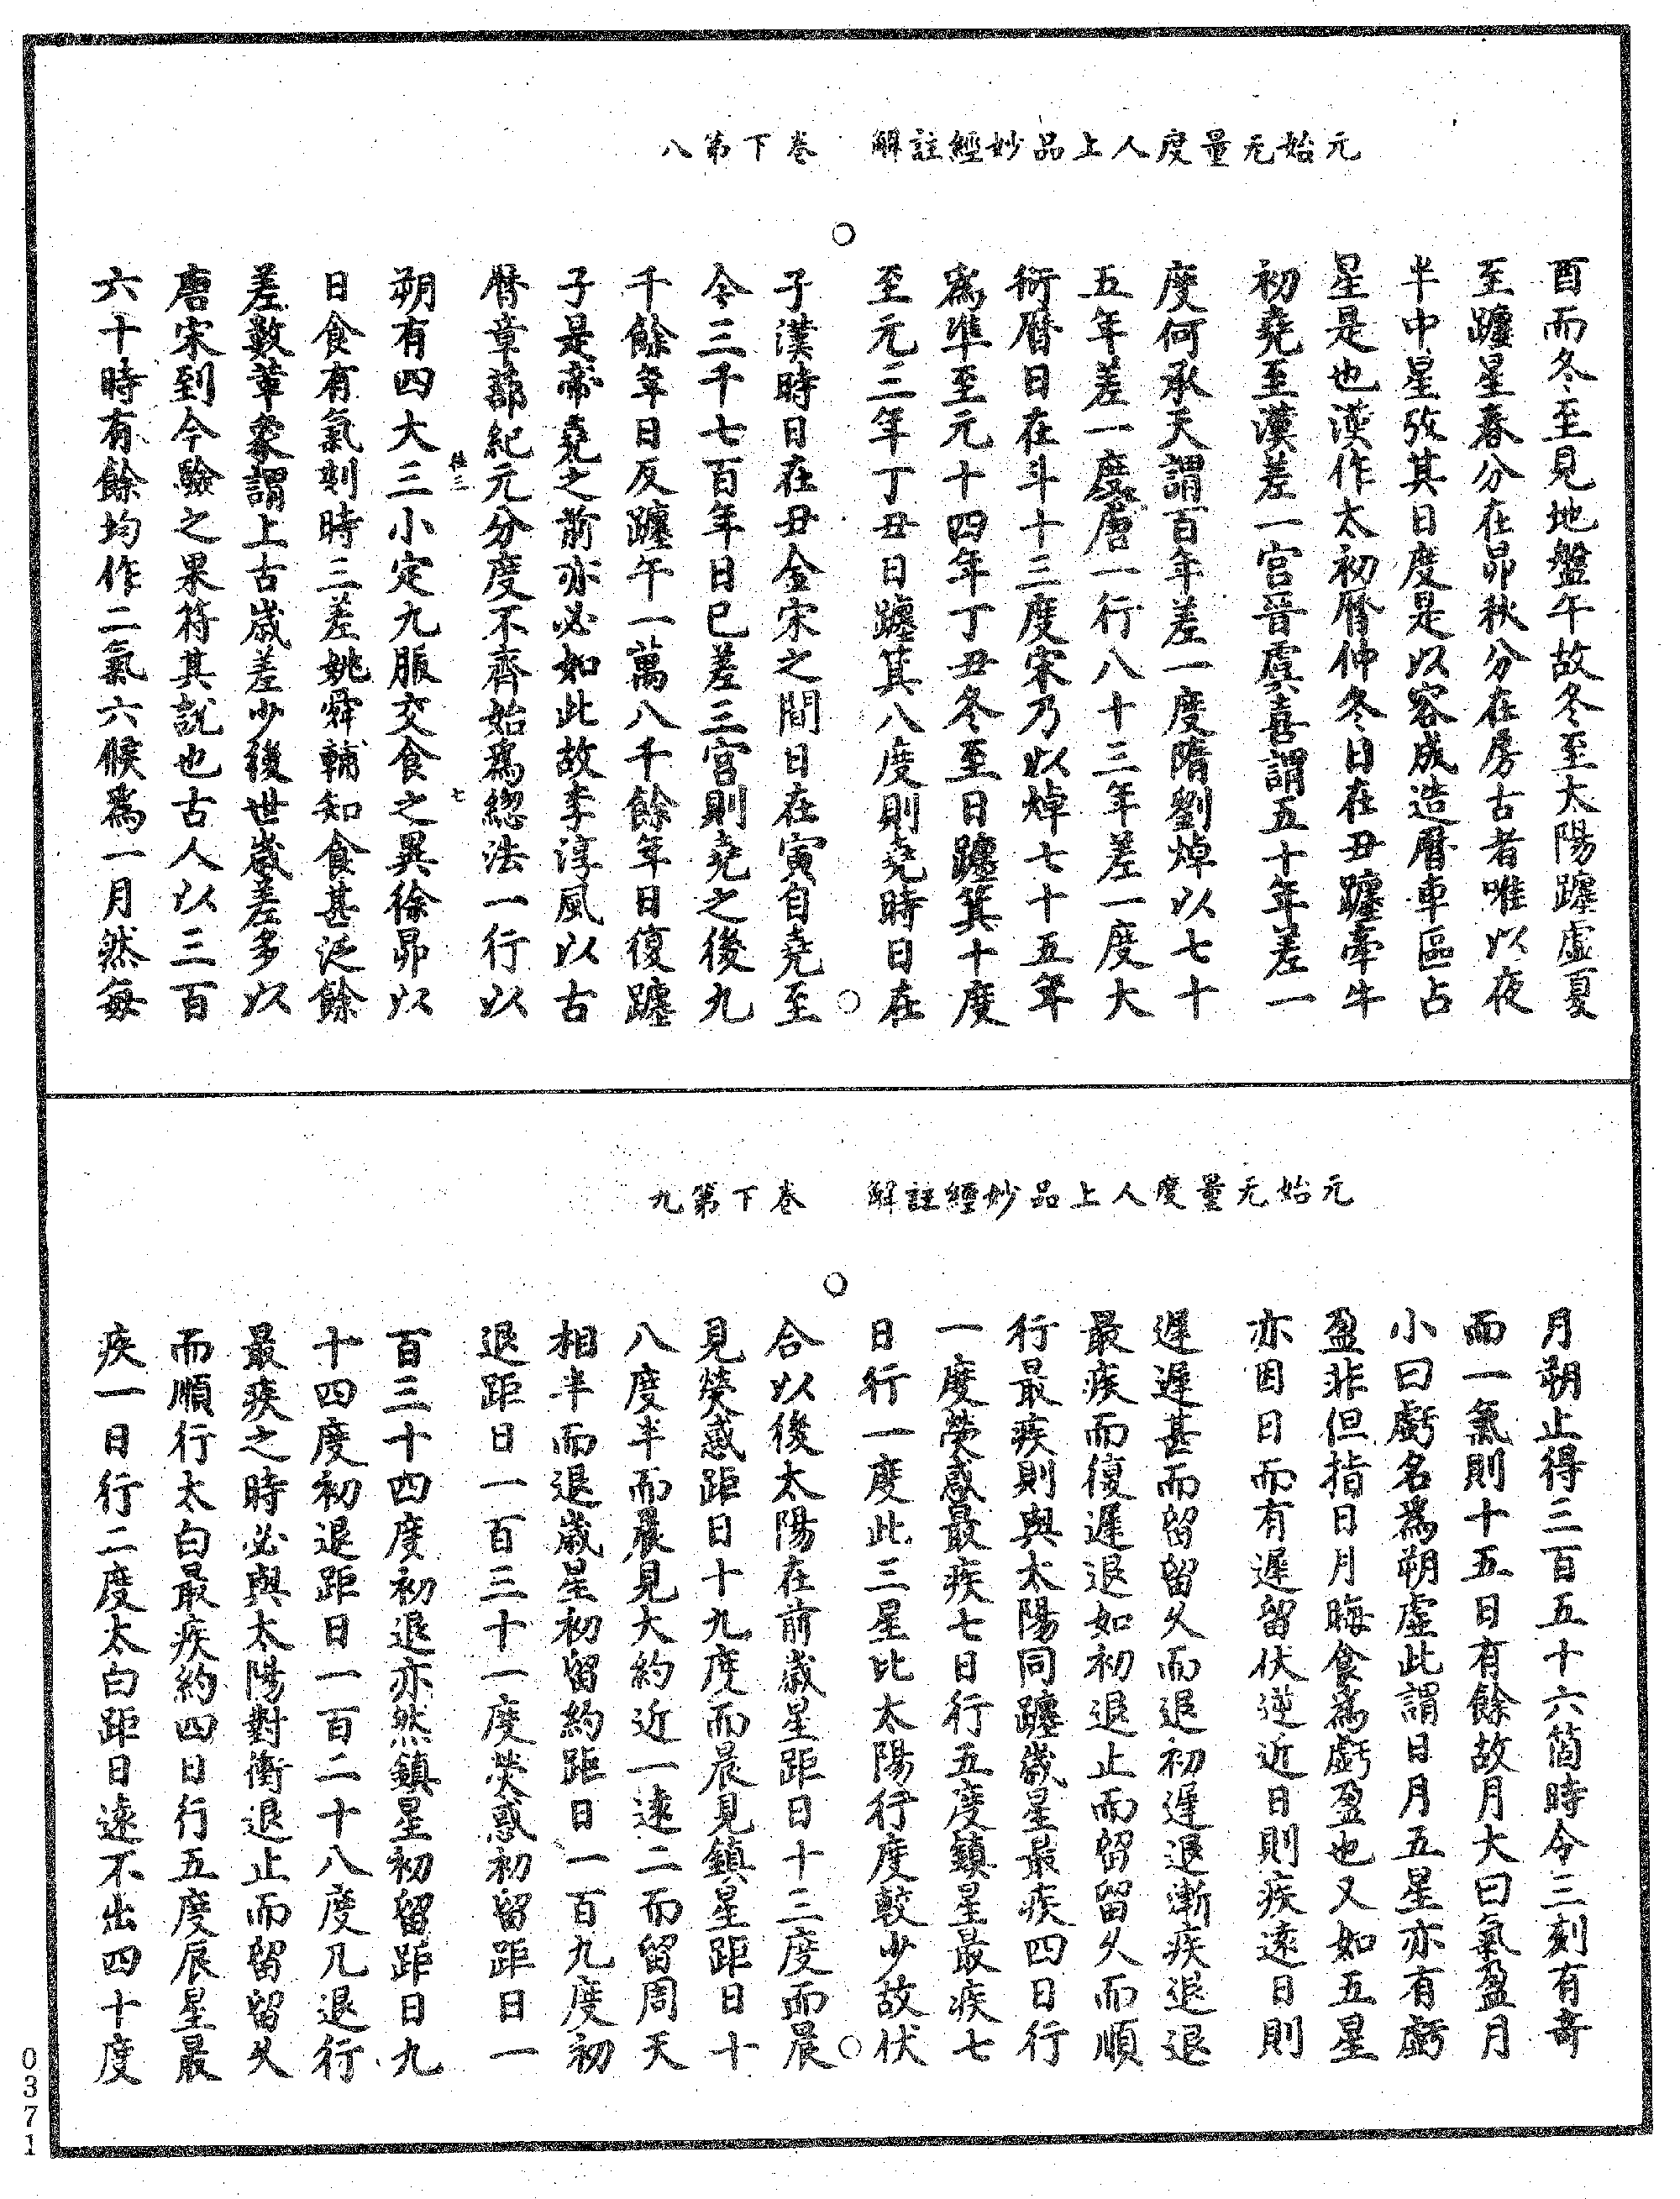 元始无量度人上品妙經註解　卷下第八
酉而冬至見地盤午故冬至太陽躔虛夏
至躔星春分在昴秋分在房古者唯以夜
半中星攷其日度是以容成造曆車區占
星是也漢作太初曆仲冬日在丑躔牽牛
初堯至漢差一宮晉虞喜謂五十年差一
度何承天謂百年差一度隋劉焯以七十
五年差一度唐一行八十三年差一度大
衍曆日在斗十三度宋乃以焯七十五年
爲準至元十四年丁丑冬至日躔箕十度
至元三年丁丑日躔箕八度則堯時日在
子漢時日在丑金宋之間日在寅自堯至
今三千七百年日已差三宮則堯之後九
千餘年日反躔午一萬八千餘年日復躔
子是帝堯之前亦必如此故李淳風以古
曆章蔀紀元分度不齊始爲緫法一行以
朔有四大三小定九服交食之異徐昴以
日食有氣刻時三差姚舜輔知食甚泛餘
差數草象謂上古歲差少後世歲差多以
唐宋到今驗之果符其說也古人以三百
六十時有餘均作二氣六候爲一月然每
元始无量度人上品妙經註解　卷下第九
月朔止得三百五十六箇時令三刻有奇
而一氣則十五日有餘故月大曰氣盈月
小曰虧名爲朔虛此謂日月五星亦有虧
盈非但指日月晦食爲虧盈也又如五星
亦因日而有遲留伏逆近日則疾遠日則
遲遲甚而留留久而退初遲退漸疾退退
最疾而復遲退如初退止而留留久而順
行最疾則與太陽同躔歲星最疾四日行
一度熒惑最疾七日行五度鎮星最疾七
日行一度此三星比太陽行度較少故伏
合以後太陽在前歲星距日十三度而晨
見熒惑距日十九度而晨見鎮星距日十
八度半而晨見大約近一遠二而留周天
相半而退歲星初留約距日一百九度初
退距日一百三十一度熒惑初留距日一
百三十四度初退亦然鎮星初留距日九
十四度初退距日一百二十八度凡退行
最疾之時必與太陽對衝退止而留留久
而順行太白最疾約四日行五度辰星最
疾一日行二度太白距日遠不出四十度
0371